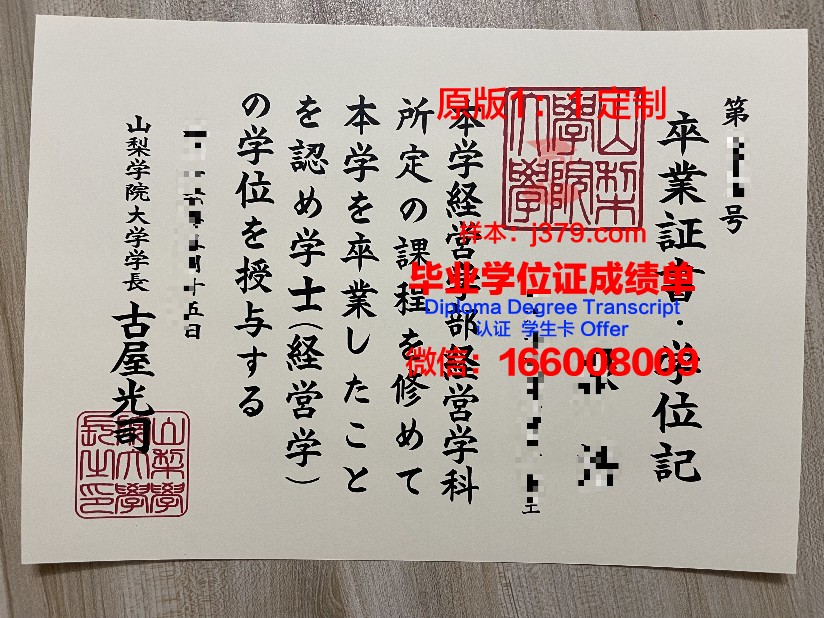 第
号
卒業証書・学位記
本学経営学部経営学科
所定の課程を修めて
本学を卒業したこと
を認め学士(経営学)
の学位を授与する
十五日
山梨学院大学学長
古屋光司
山梨
學院
大學
山梨學
院大學
長之印
原版1:1定制
样本:j379.com
毕业学位证成绩单
Diploma Degree Transcript
认证 学生卡 Offer
微信:166008009